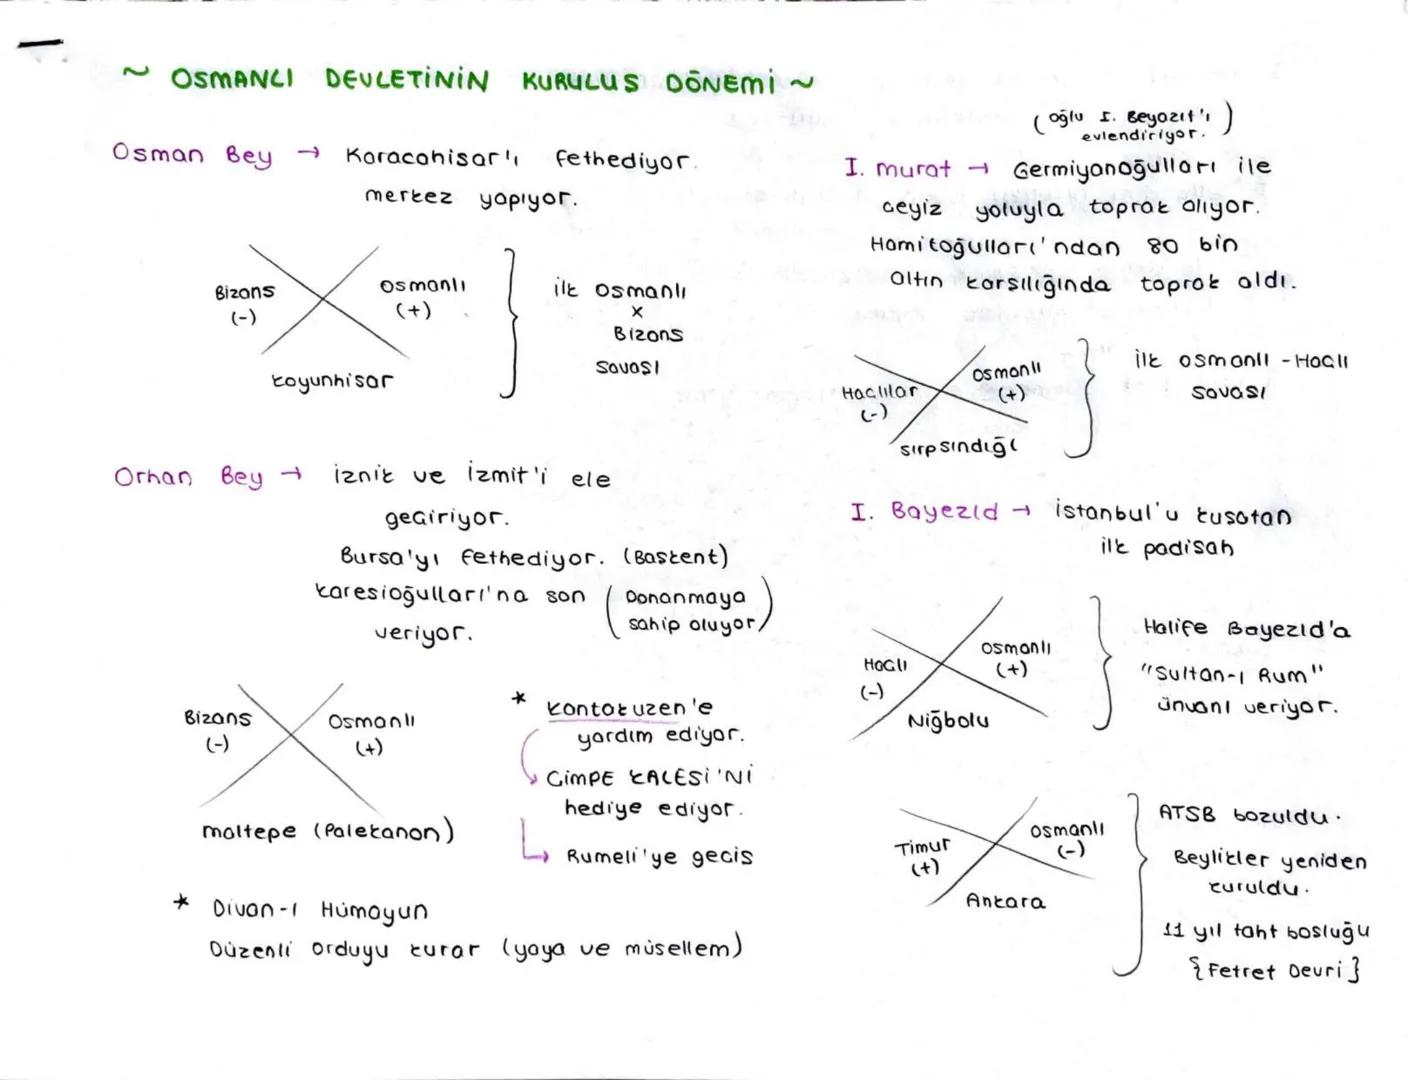 ~ OSMANLI DEVLETİNİN KURULUS DÖNEMİ ~
Osman Bey → Karacahisar'ı fethediyor.
merkez yapıyor.
Bizans
(-)
Osmanlı
(+)
Koyunhisar
ilk Osmanlı
x
Bizans
Savası
Orhan Bey → iznik ve izmit'i ele
geciriyor.
Bursa'yı fethediyor. (Baskent)
Karesioğulları'na son
veriyor.
(Donanmaya
sahip oluyor)
Bizans
(-)
Osmanlı
(+)
maltepe (Palekanon)
* Kontakuzen'e
yardım ediyor.
CİMPE KALESİ'Nİ
hediye ediyor.
Rumeli'ye gecis
* Divan-ı Hümayun
Düzenli orduyu kurar (yaya ve müsellem)
(oğlu I. Beyazıt'ı
evlendiriyor.)
I. murat → Germiyanoğulları ile
ceyiz yoluyla toprak alıyor.
Hamitoğulları'ndan 80 bin
altın karsılığında toprak aldı.
Haclılar
(-)
Osmanlı
(+)
sırpsındığı
ilk osmanlı - Haclı
savası
I. Bayezıd → istanbul'u kusatan
ilk padisah
Haclı
(-)
Osmanlı
(+)
Niğbolu
Halife Bayezıd'a
"Sultan-ı Rum"
ünvanı veriyor.
Timur
(+)
Osmanlı
(-)
Ankara
ATSB bozuldu.
Beylikler yeniden
kuruldu.
11 yıl taht bosluğu
{Fetret Devri}